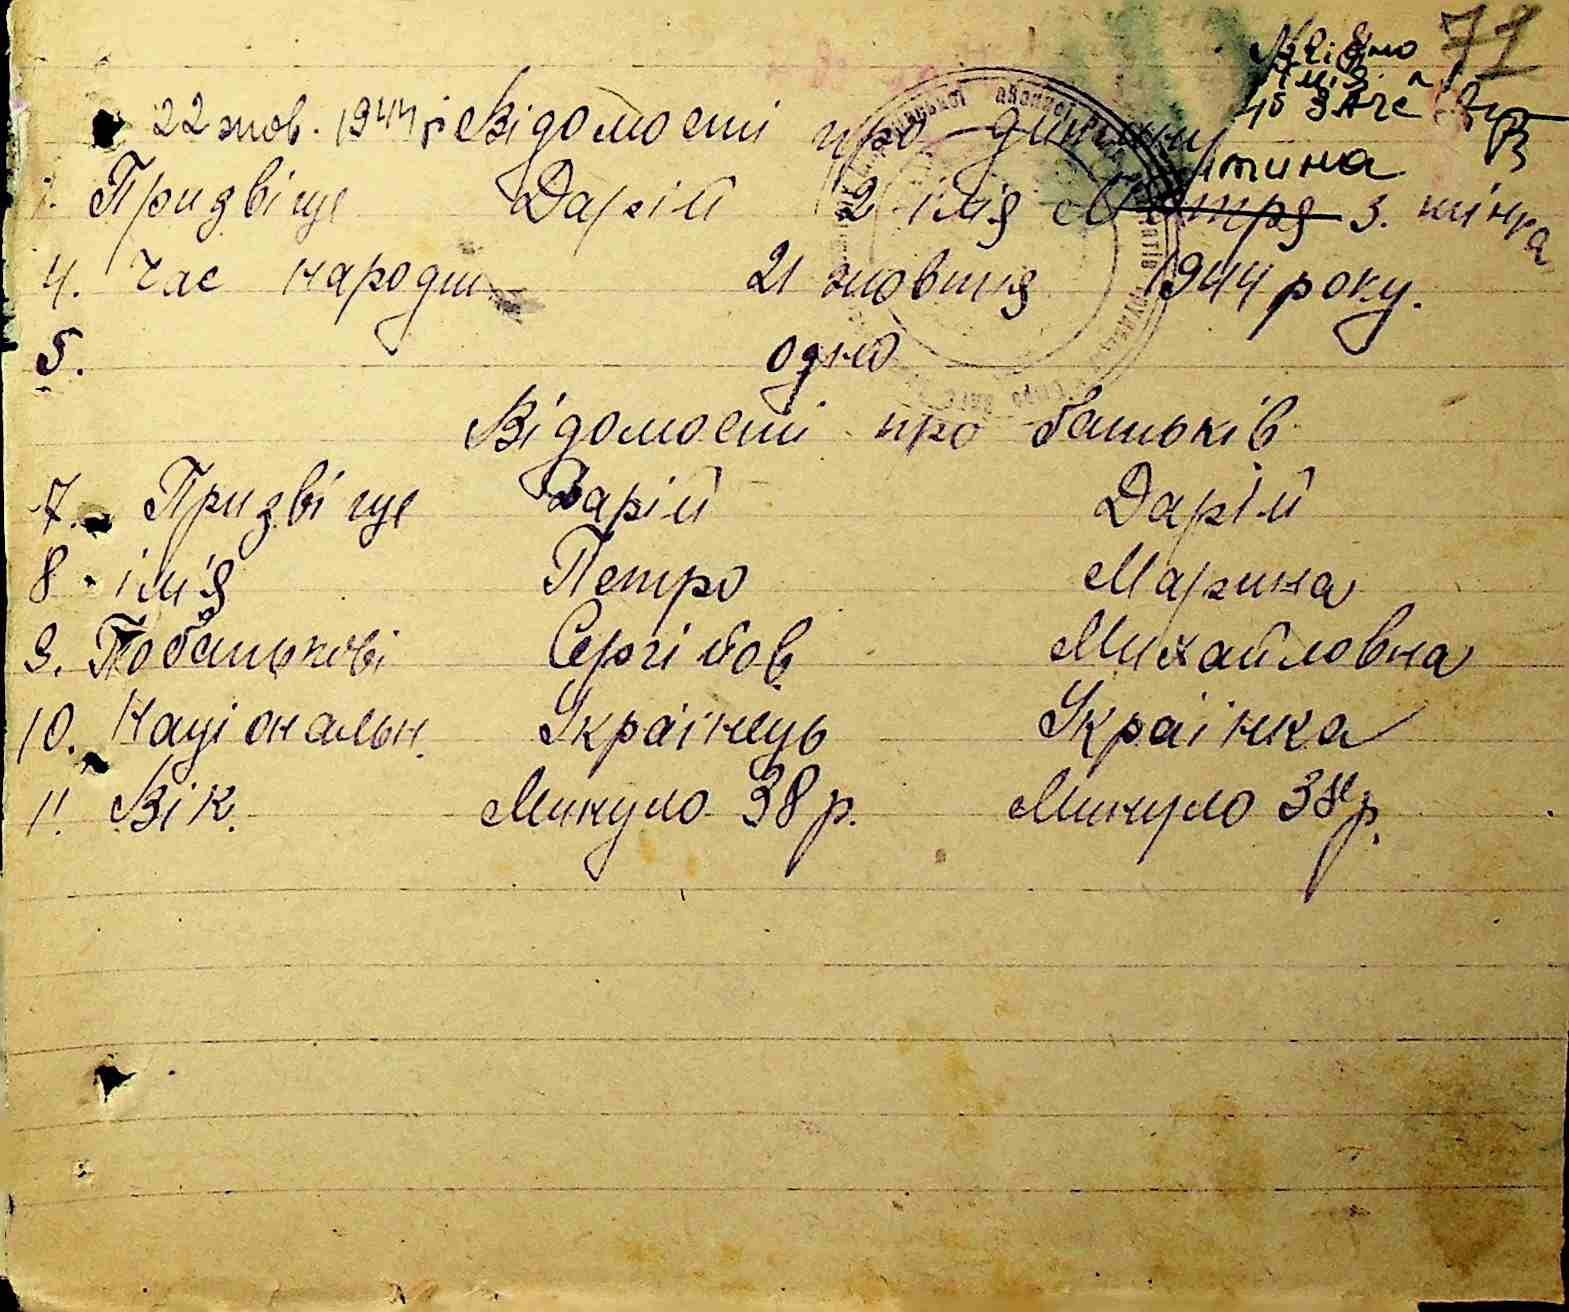 71
22 жов. 1944 р Відомості про дитину
1. Призвіще Дарій 2 імя 3. жінка
тина
4. Час народж. 21 жовтня 1944 року.
5. одно
Відомости про батьків
7. Призвіще Дарій Дарій
8. ім'я Петро Марина
9. Побатькові Сергійов Михайловна
10. Національн. Українець Українка
11. Вік. Минуло 38 р. Минуло р.